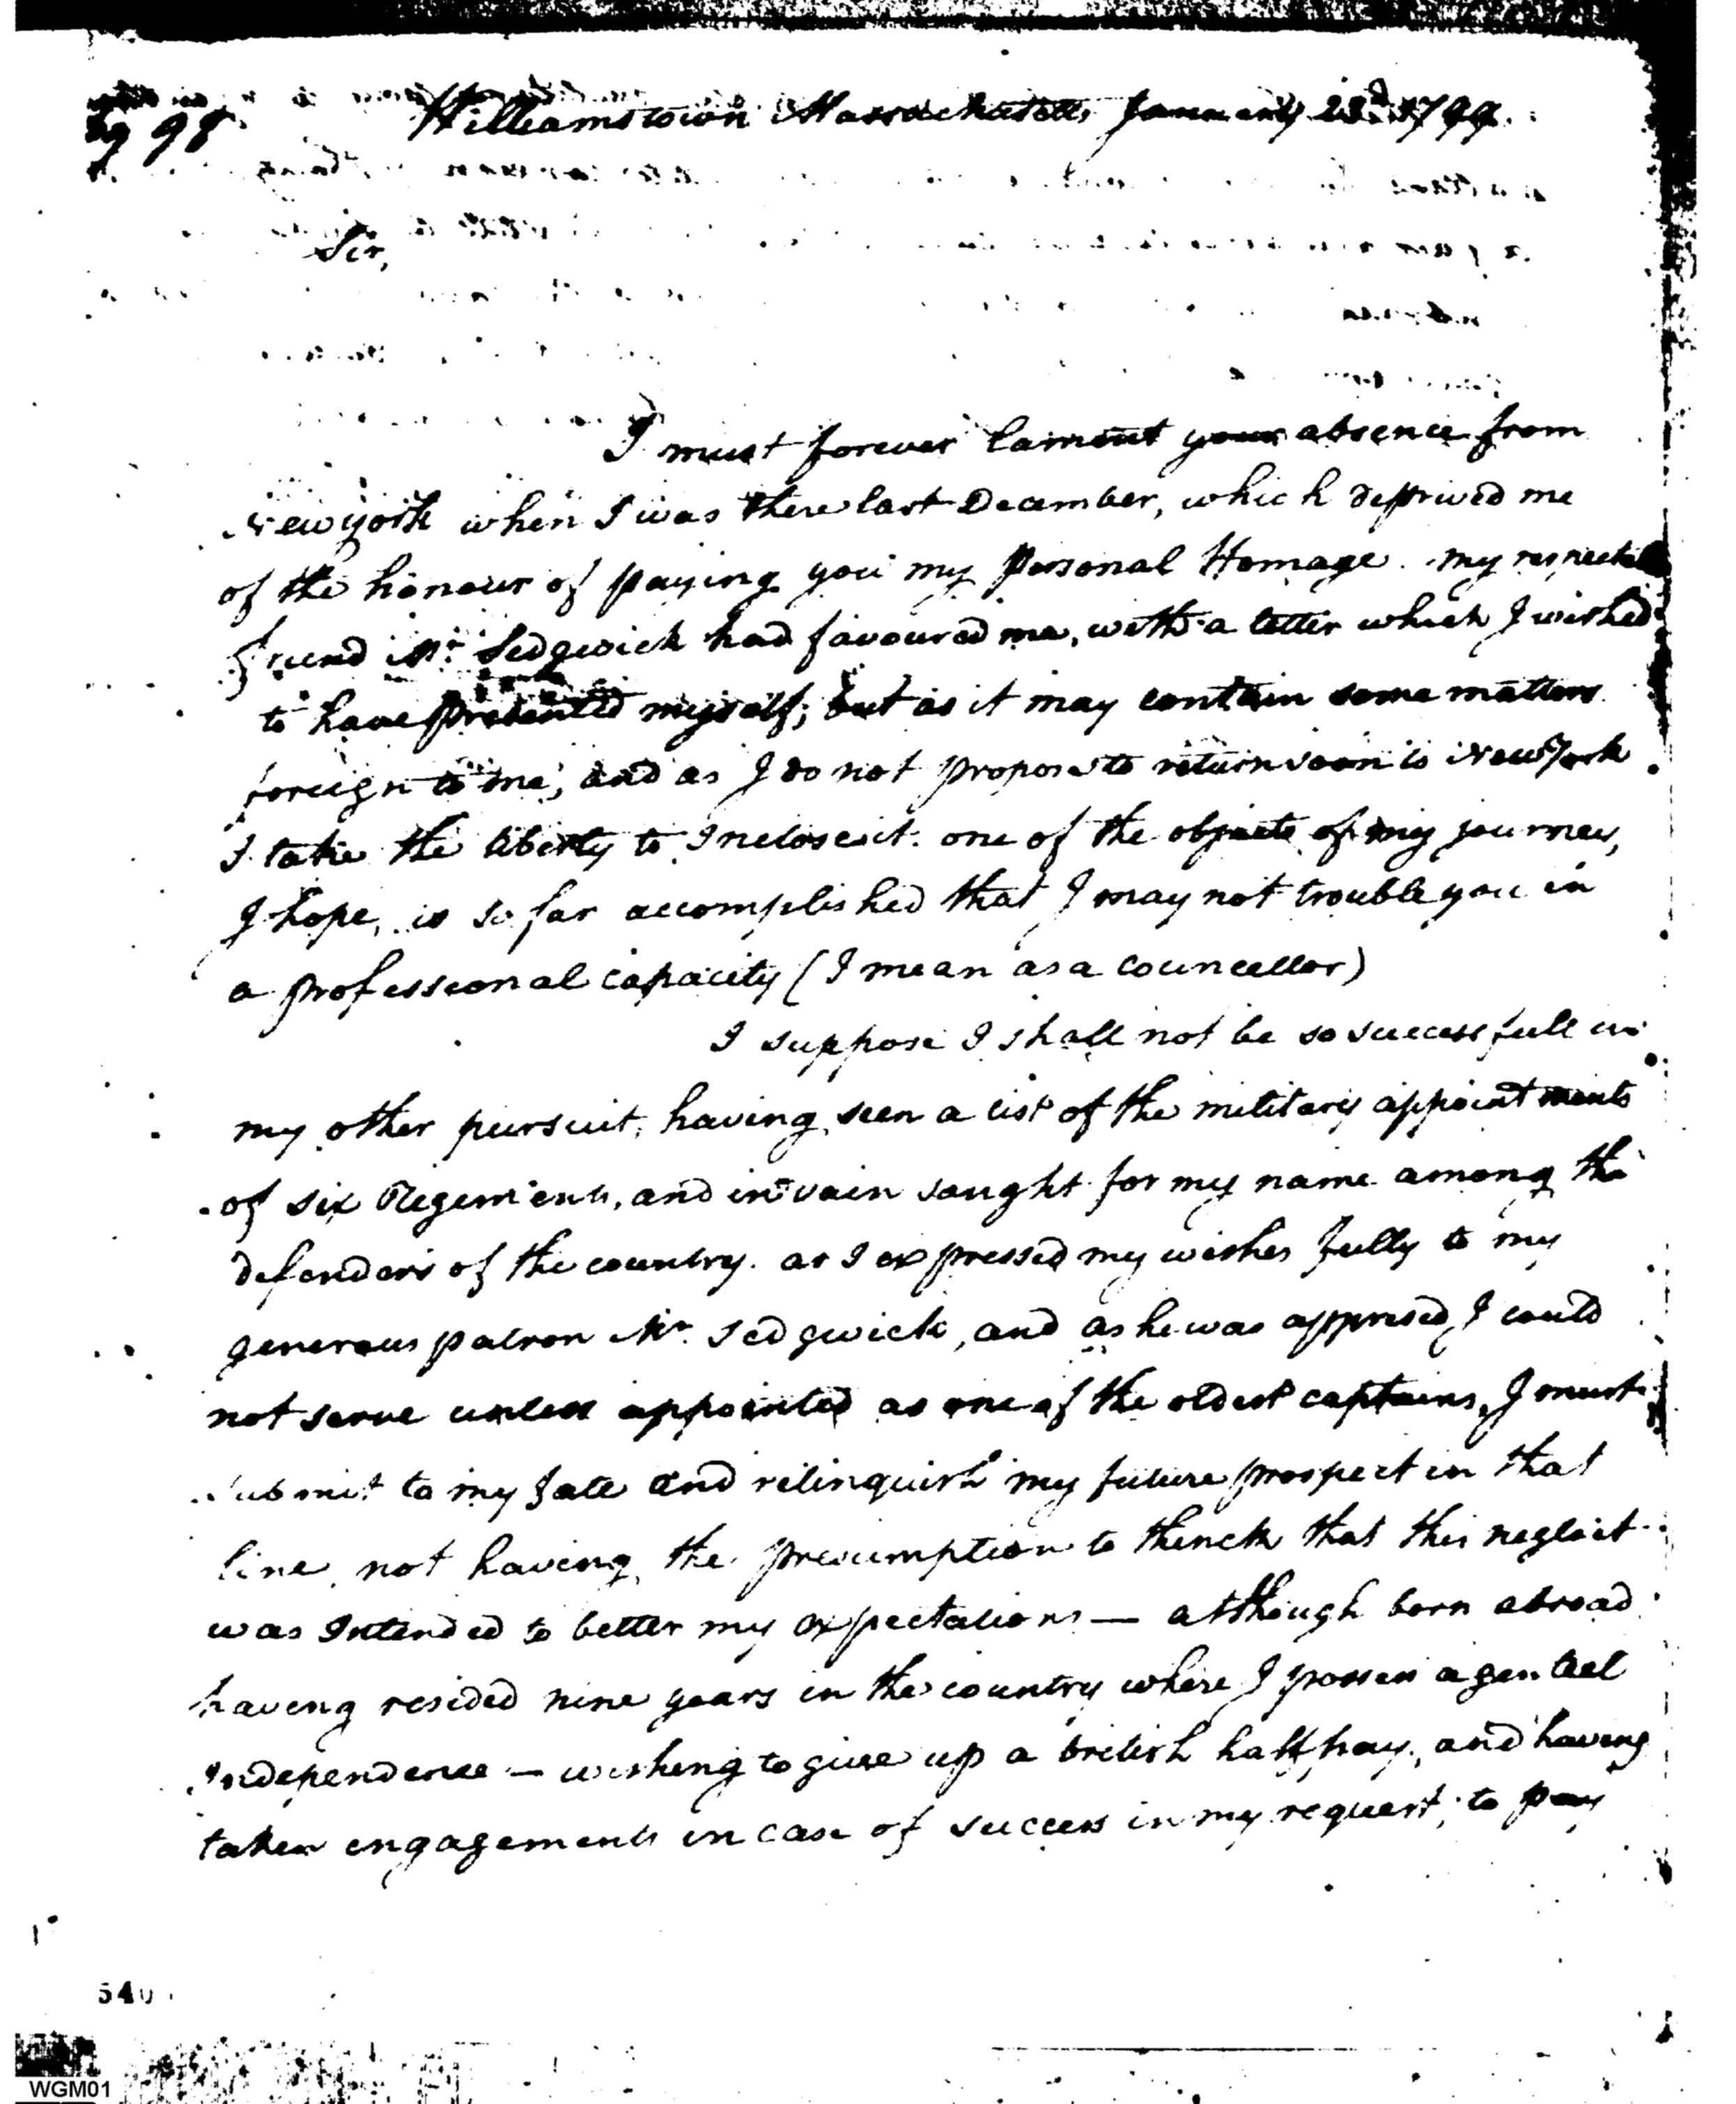 98
Williamstown Massachusetts January 23d 1799.
Sir,
I must forever lament your absence from
New york when I was there last December, which deprived me
of the honour of paying you my personal Homage. my respected
friend Mr. Sedgwick had favoured me, with a letter which I wished
to have presented myself; but as it may contain some matters
foreign to me, and as I do not propose to return soon to New York
I take the liberty to Inclose it. one of the objects of my journey,
I hope, is so far accomplished that I may not trouble you in
a professional capacity (I mean as a councellor)
I suppose I shall not be so successfull in
my other pursuit, having seen a list of the military appointments
of six Regements, and in vain sought for my name among the
defenders of the country. as I expressed my wishes fully to my
generous patron Mr. Sedgwick, and as he was apprised, I could
not serve unless appointed as one of the oldest captains, I must
submit to my fate and relinquish my future prospect in that
line, not having the presumption to thinck that this neglect
was Intended to better my expectations — although born abroad
having resided nine years in the country where I possess a genteel
Independence — wishing to give up a british half pay, and having
taken engagements in case of success in my request, to pay
540
WGM01